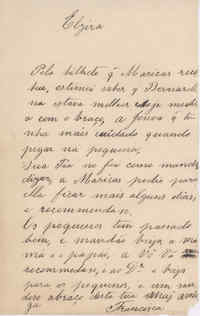 Elzira
Pelo bilhete q̃ Maricas rece
beu, estimei saber q̃ Bernardi
na estava melhor
o com o braço, a
nha mais cuidado quando
pegar na pequena;
Sua Tia no fim como mandou
dizer, a Maricas pedio para
Ella ficar mais alguns dias,
e recommenda-n.
Os pequenos tem passado
bem, e mandão beijo a ma
mãe e papai, a Vó Vó
recommendase, e ao Dr. e beijo
para os pequenos, e um sau
doso abraço desta tua amiga
Francisca